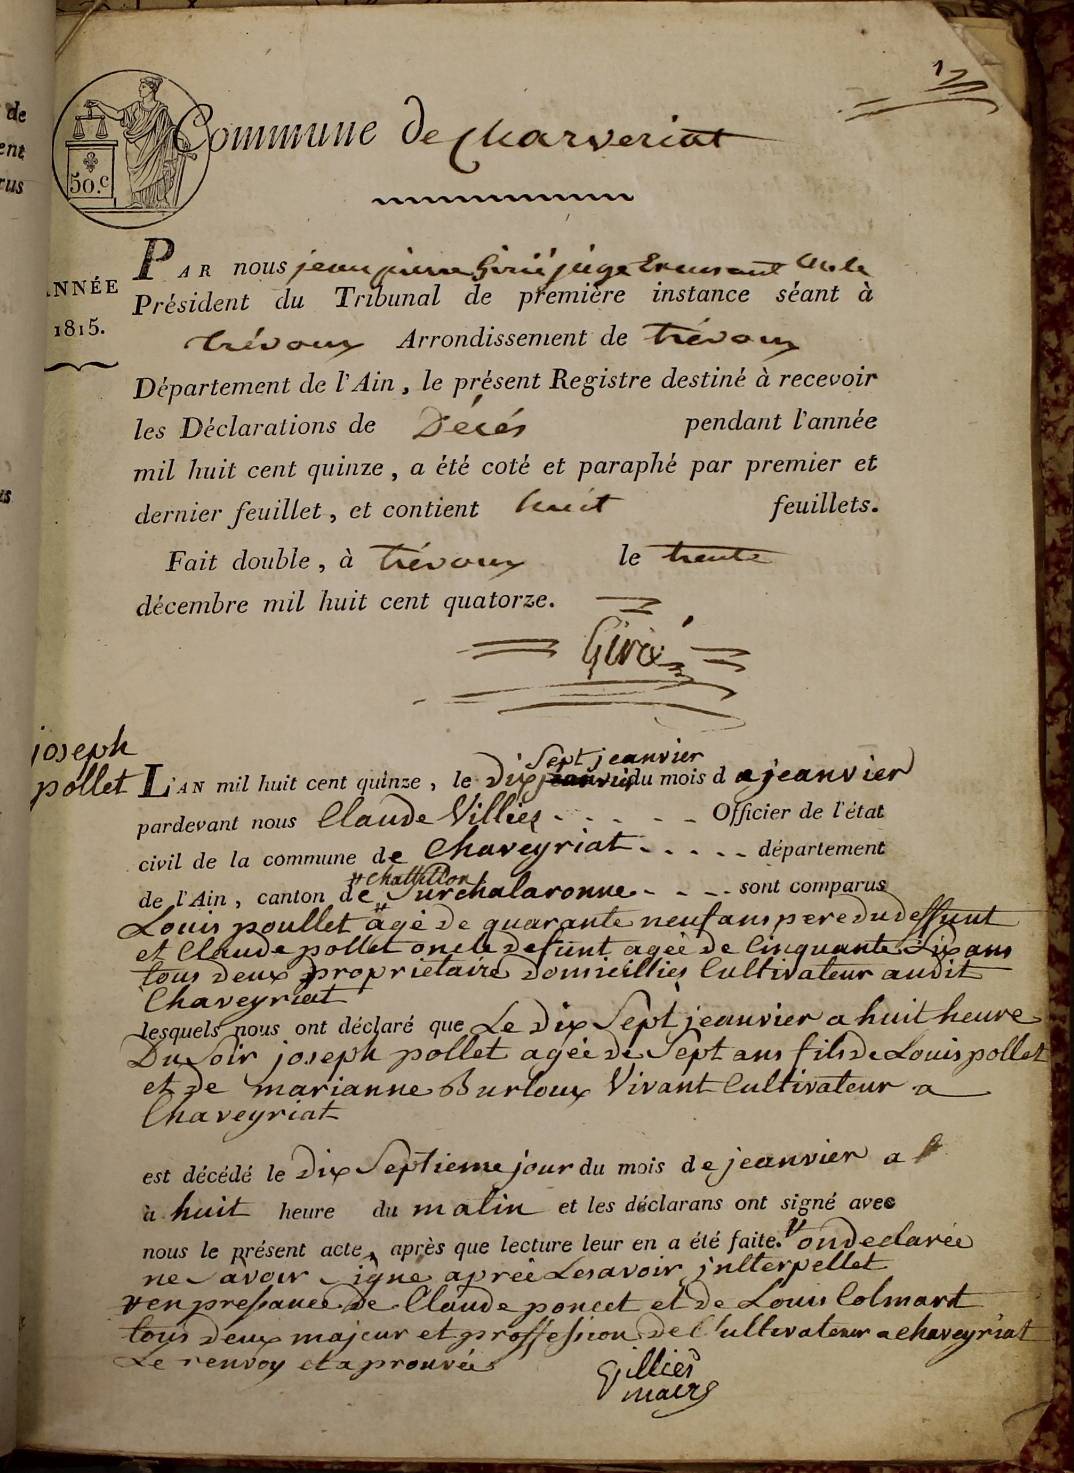 de
ent
rus
50.c
Commune de Charveriat
ANNÉE
1815.
PAR nous jean pierre Girié juge
Président du Tribunal de première instance séant à
trévoux Arrondissement de trévoux
Département de l'Ain, le présent Registre destiné à recevoir
les Déclarations de Décés pendant l'année
mil huit cent quinze, a été coté et paraphé par premier et
dernier feuillet, et contient huit feuillets.
Fait double, à trévoux le trente
décembre mil huit cent quatorze.
joseph
pollet
Sept jeanvier
L'AN mil huit cent quinze, le dix jeanvier du mois d ajeanvier
pardevant nous Claude Villies Officier de l'état
civil de la commune de Chaveyriat département
chatillon
de l'Ain, canton de Surchalaronne sont comparus
Louis poullet agé de quarante neuf ans pere du deffunt
et Claude pollet oncle defunt agée de Cinquante dix ans
tous deux propriétaire domicilliés Cultivateur audit
Chaveyriat
lesquels nous ont déclaré que Le dix Sept jeanvier a huit heure
Du Soir joseph pollet agée de Sept ans fils de Louis pollet
et de marianne Burloux Vivant Cultivateur a
Chaveyriat
est décédé le Dix Septieme jour du mois de jeanvier a
à huit heure du matin et les déclarans ont signé avec
nous le présent acte, après que lecture leur en a été faite. on declarée
ne Savoir Signe aprée Lesavoir jnlterpellet
en pressance de Claude poncet et de Louis Colmart
tous deux majeur et proffession de Cultivateur a chaveyriat
Le renvoy et aprouvée
Villies
maire